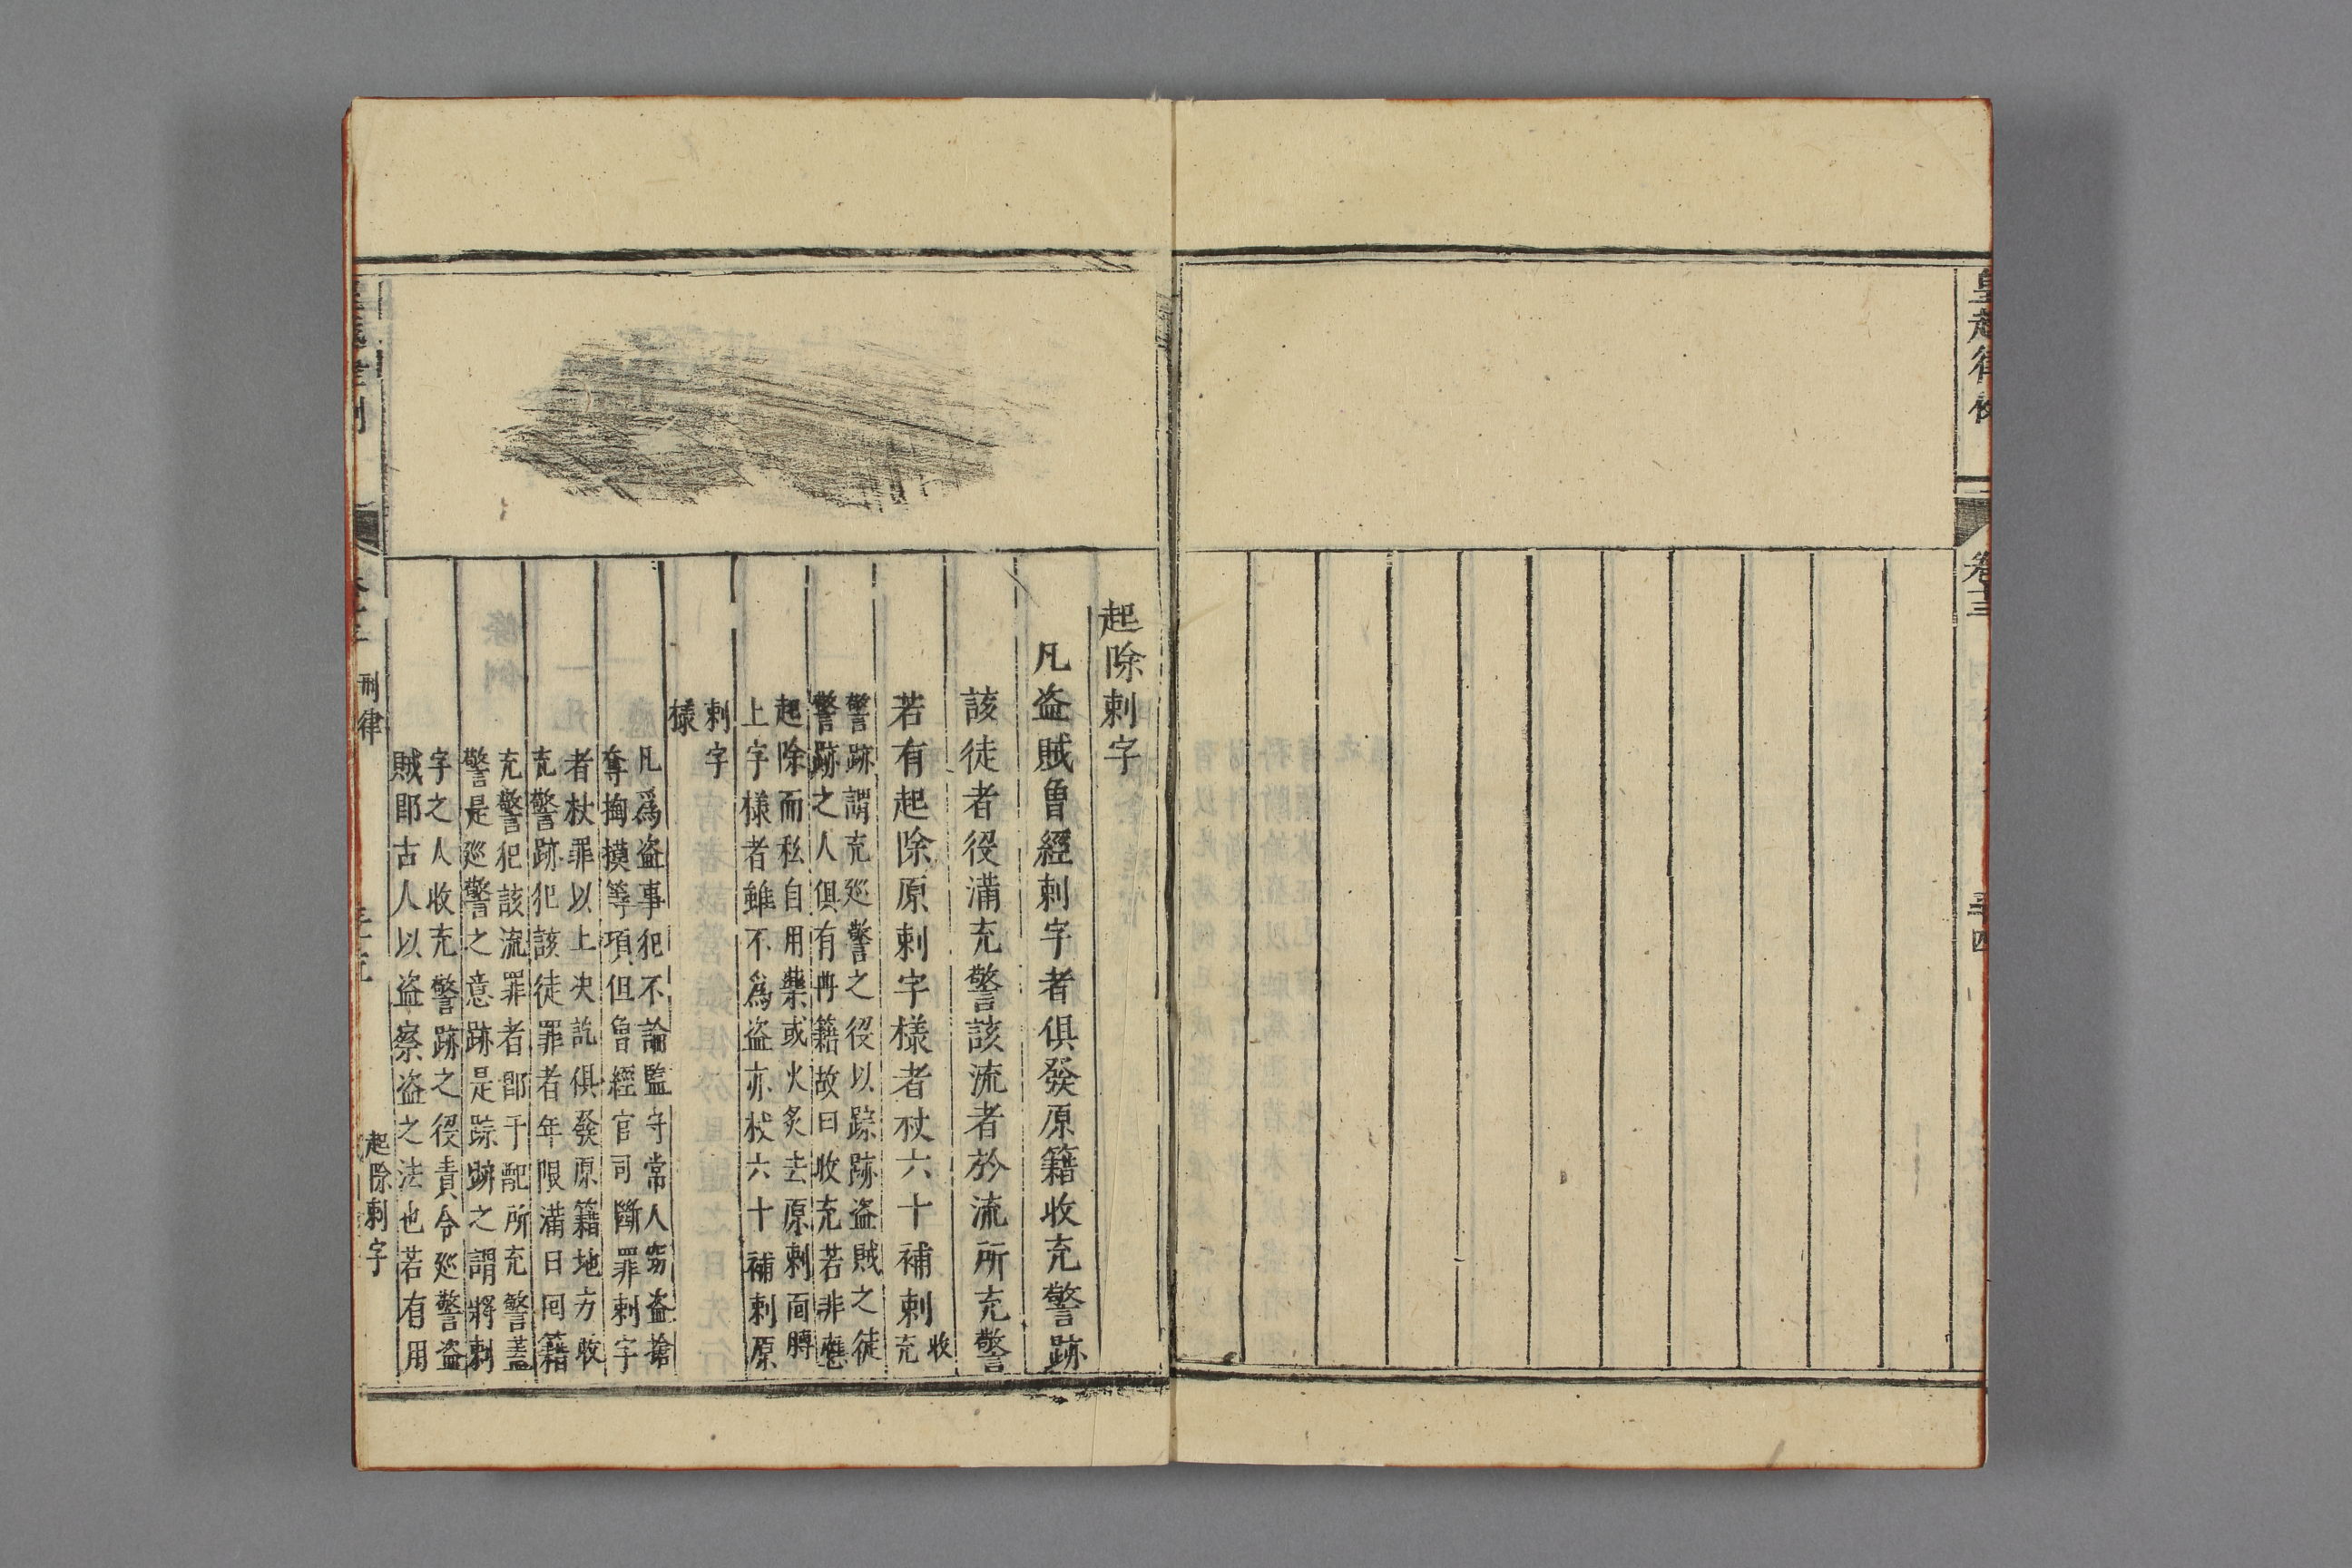 皇越律例
卷十三
三十四
起除刺字
凡盗賊曾經刺字者俱發原籍收充警跡
該徒者役滿充警該流者於流所充警
若有起除原刺字様者杖六十補刺收
充
警跡謂充廵警之役以踪跡盗賊之徒
警跡之人俱有冊籍故曰收充若非應
起除而私自用藥或火炙去原刺面膊
上字様者雖不爲盗亦杖六十補刺原
刺字
様
凡爲盗事犯不論監守常人窃盗搶
奪掏摸等項但曾經官司斷罪刺字
者杖罪以上决訖俱發原籍地方收
充警跡犯該徒罪者年限滿日囘籍
充警犯該流罪者即于配所充警蓋
警是廵警之意跡是踪跡之謂將刺
字之人收充警跡之役責令廵警盗
賊即古人以盗察盗之法也若有用
刑律
起除刺字